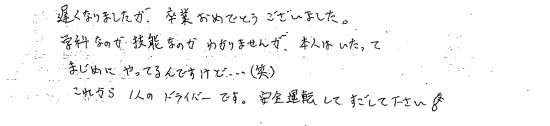 遅くなりましたが、卒業おめでとうございました。
学科なのか技能なのかわかりませんが、本人はいたって
まじめにやってるんですけど…(笑)
これから1人のドライバーです。安全運転してすごして下さい